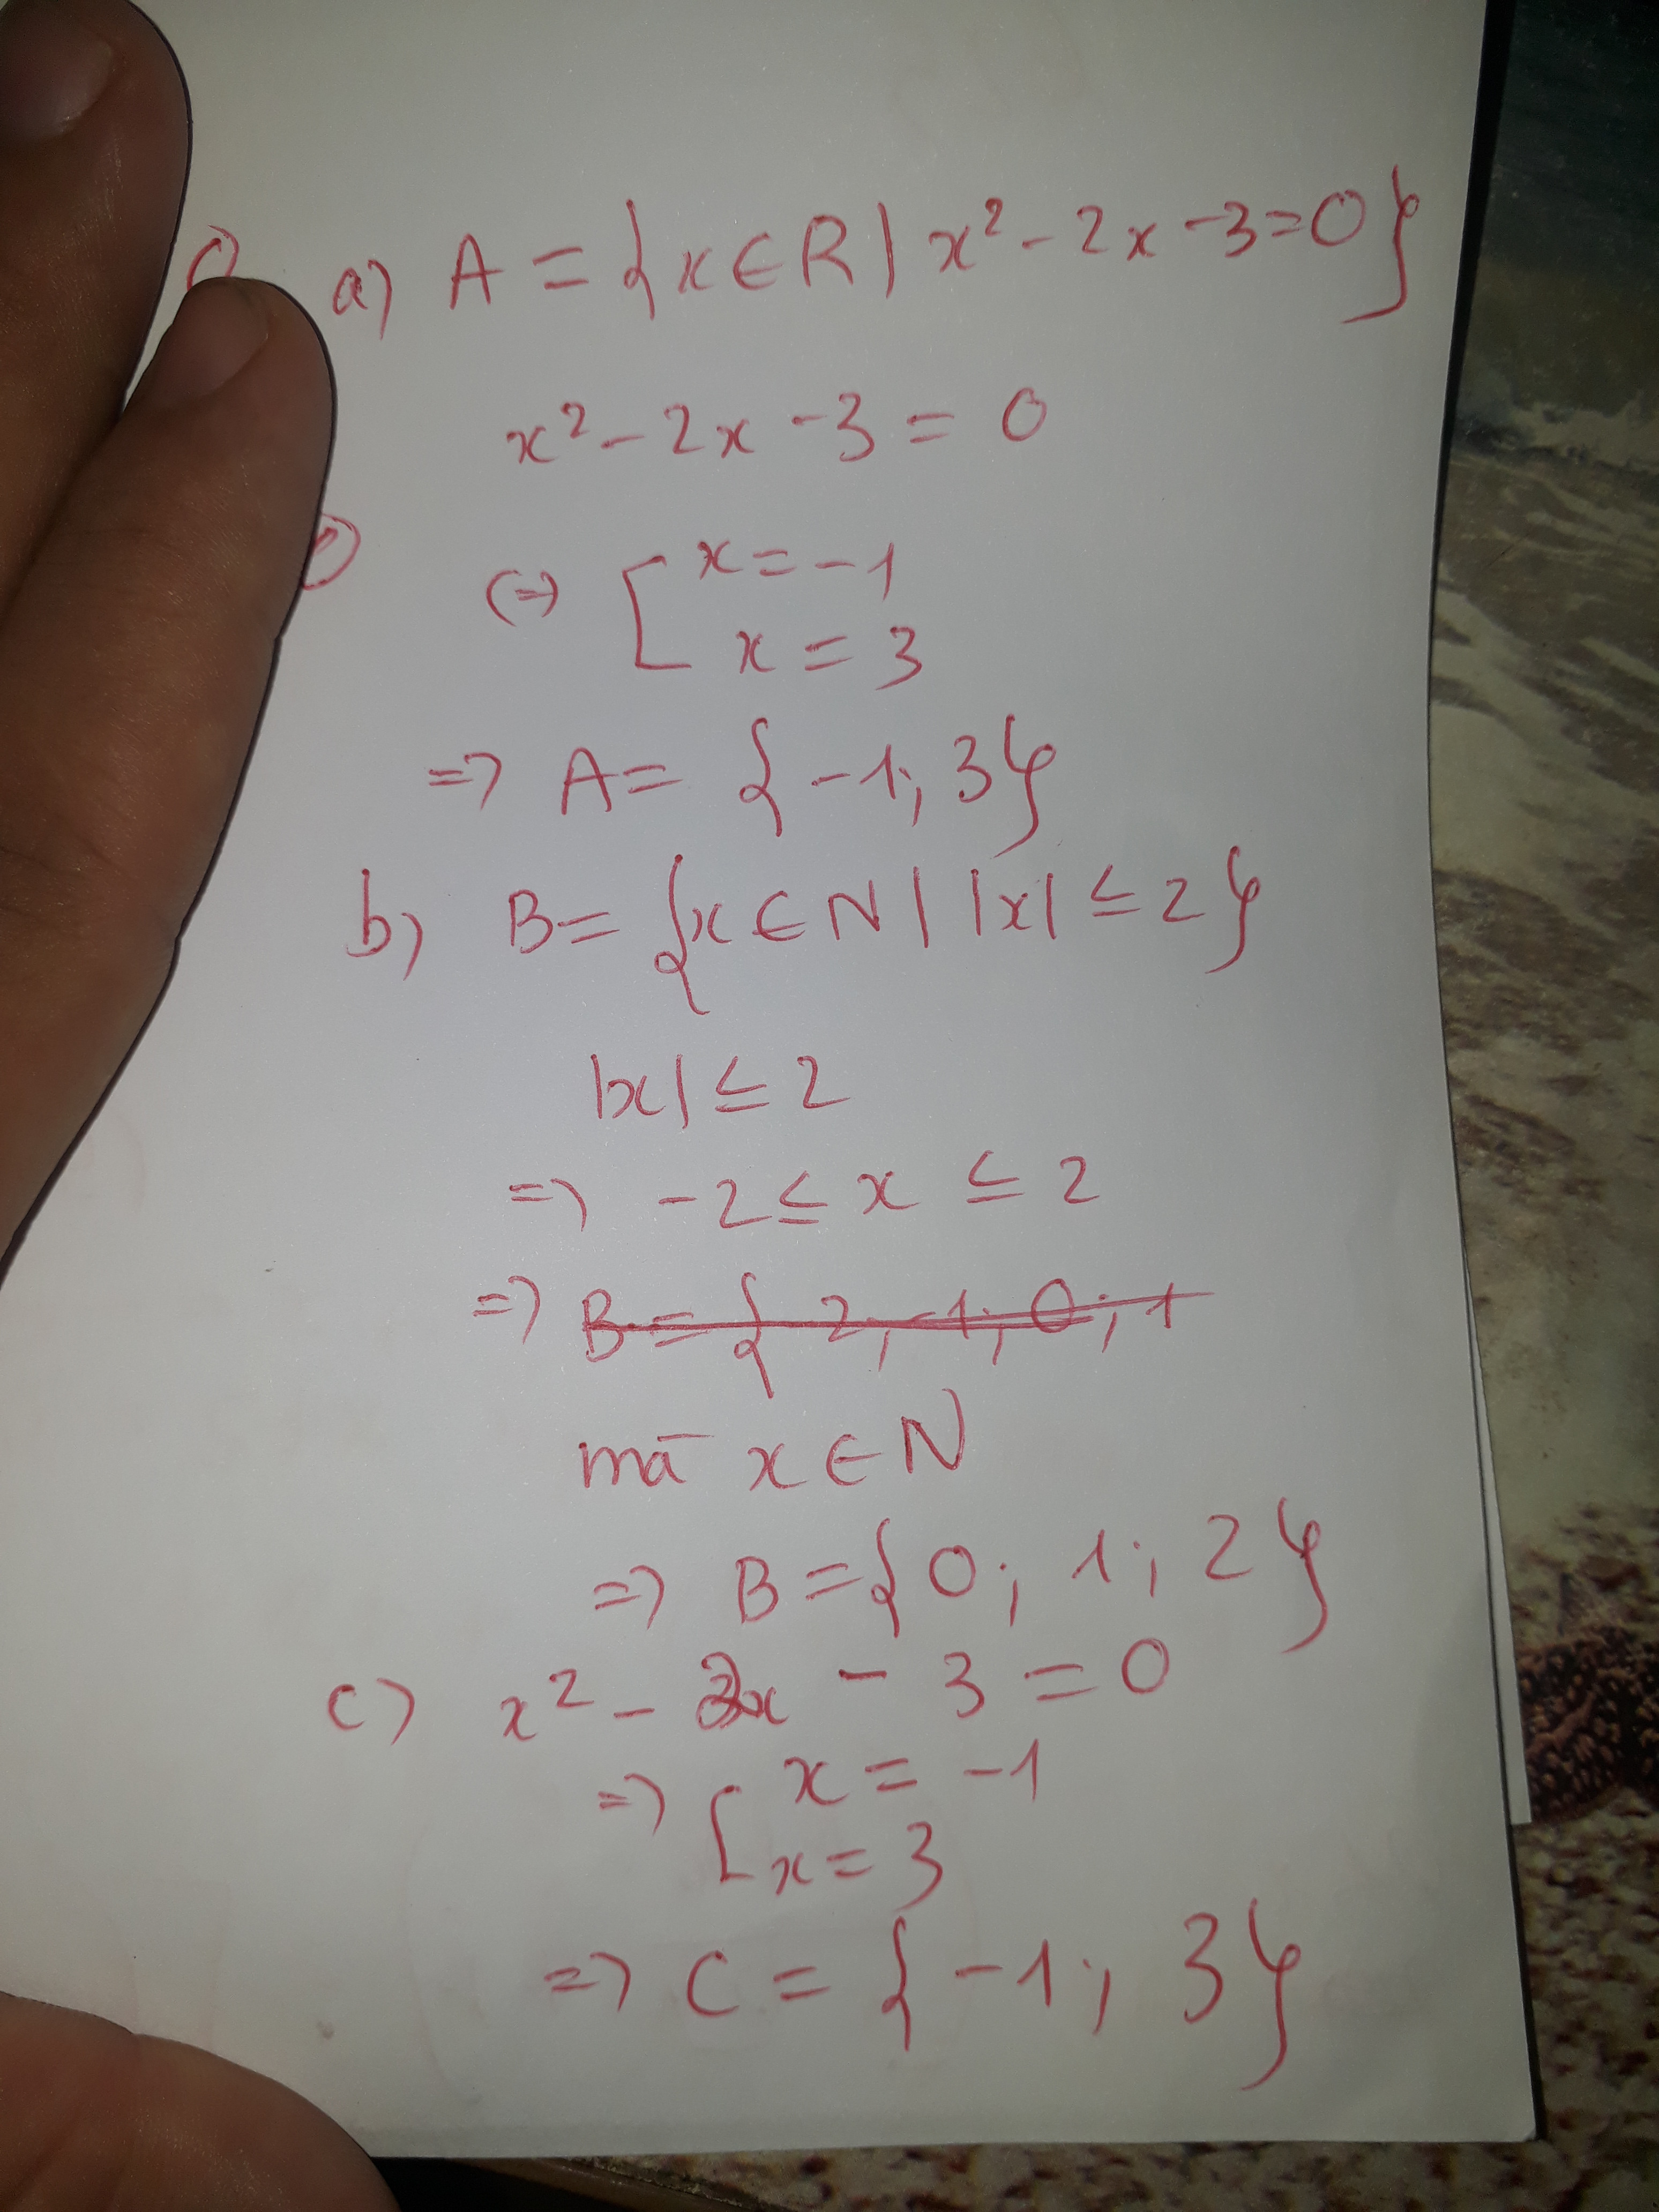 a) A = {x ∈ R | x² - 2x - 3 = 0}
x² - 2x - 3 = 0
(=) [ x = -1
x = 3
=> A = {-1; 3}
b) B = {x ∈ N | |x| ≤ 2}
|x| ≤ 2
=> -2 ≤ x ≤ 2
=> B = { 2; -1; 0; 1
mà x ∈ N
=> B = {0; 1; 2}
c) x² - 2x - 3 = 0
=> [ x = -1
x = 3
=> C = {-1; 3}